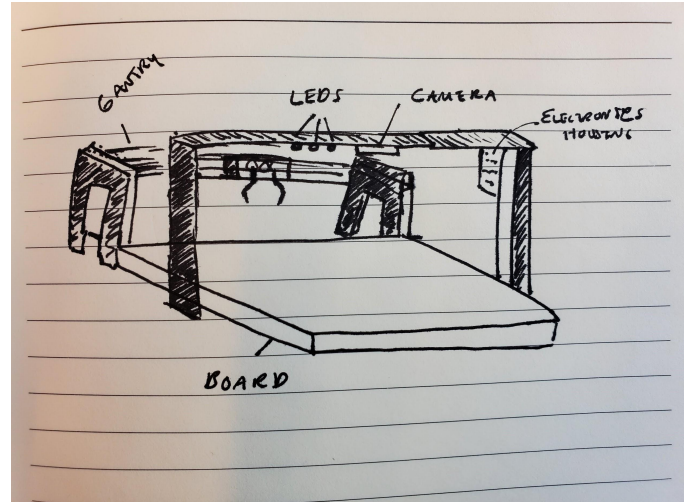 GANTRY
LEDS
CAMERA
ELECTRONICS
HOUSING
BOARD